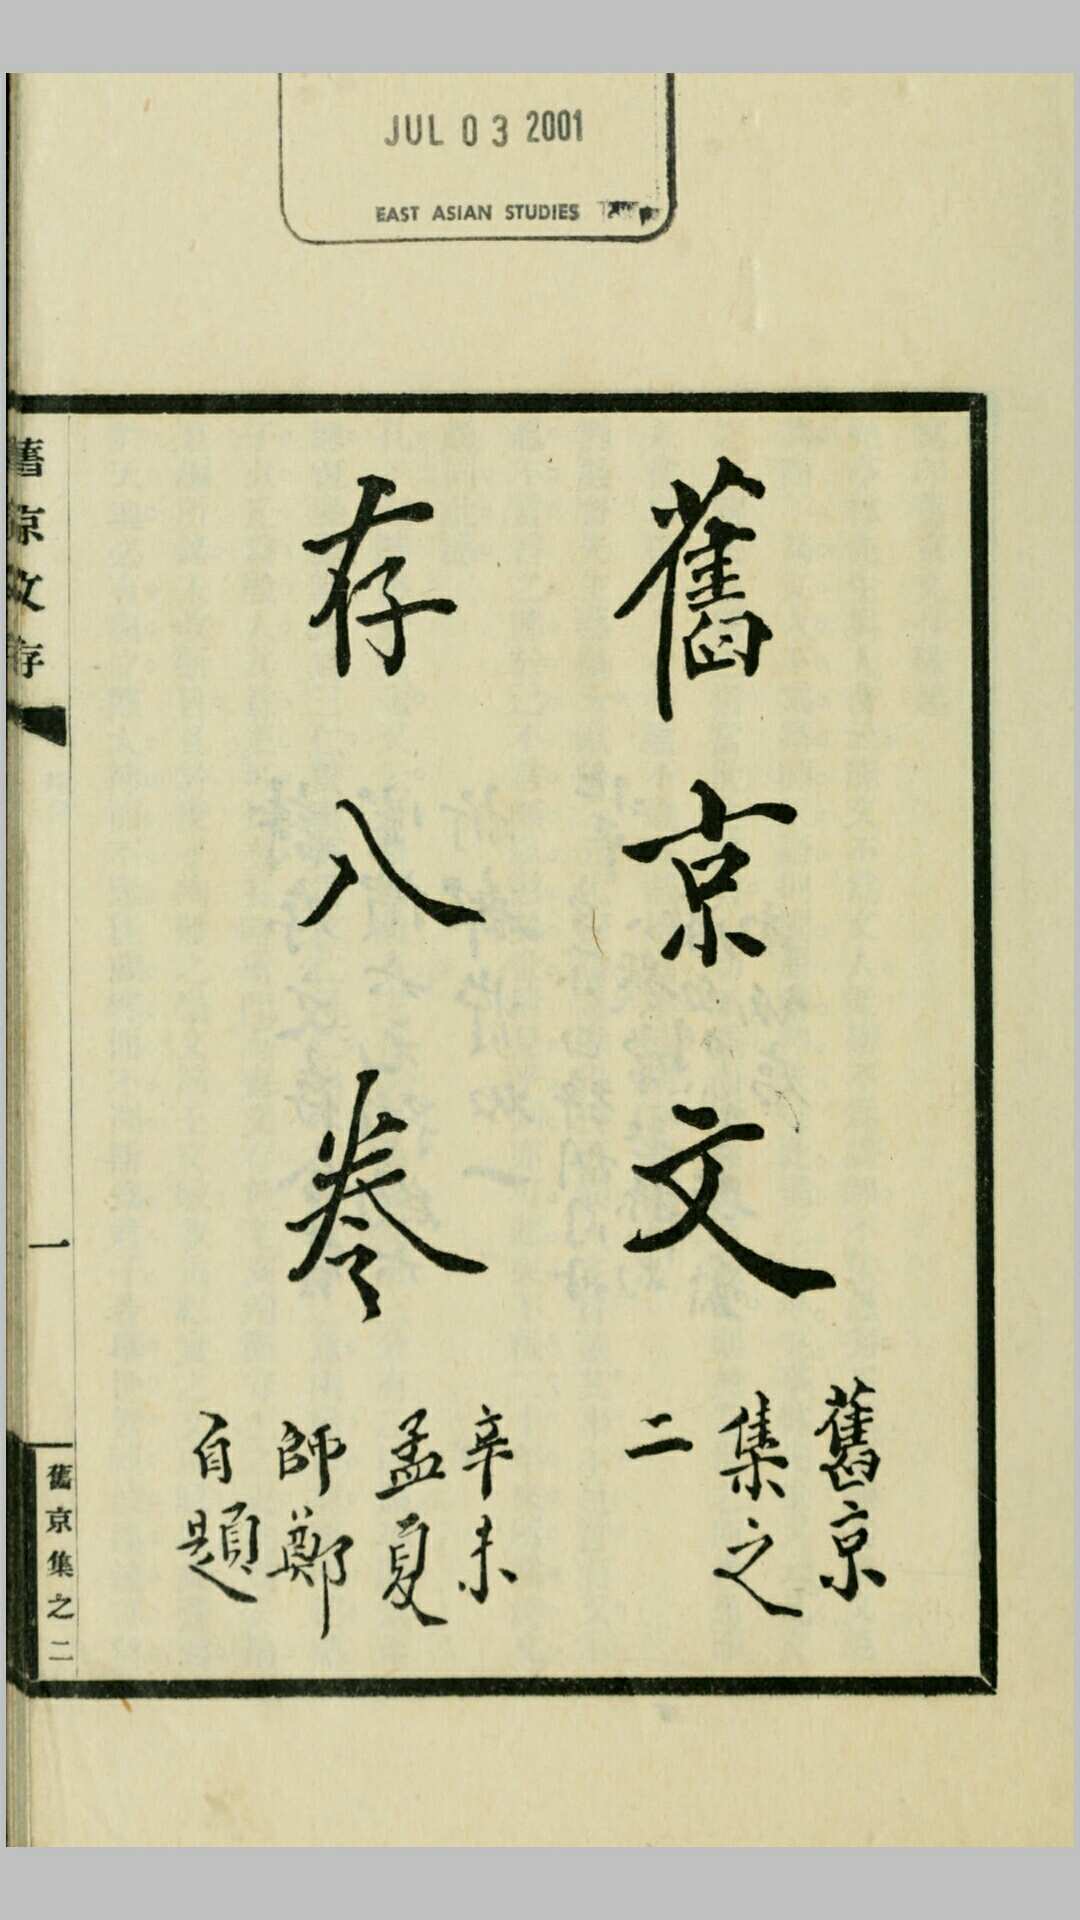 JUL 03 2001
EAST ASIAN STUDIES
舊京文
舊京
集之
二
存八卷
辛未
孟夏
師鄭
自題
舊京文存
一
舊京集之二